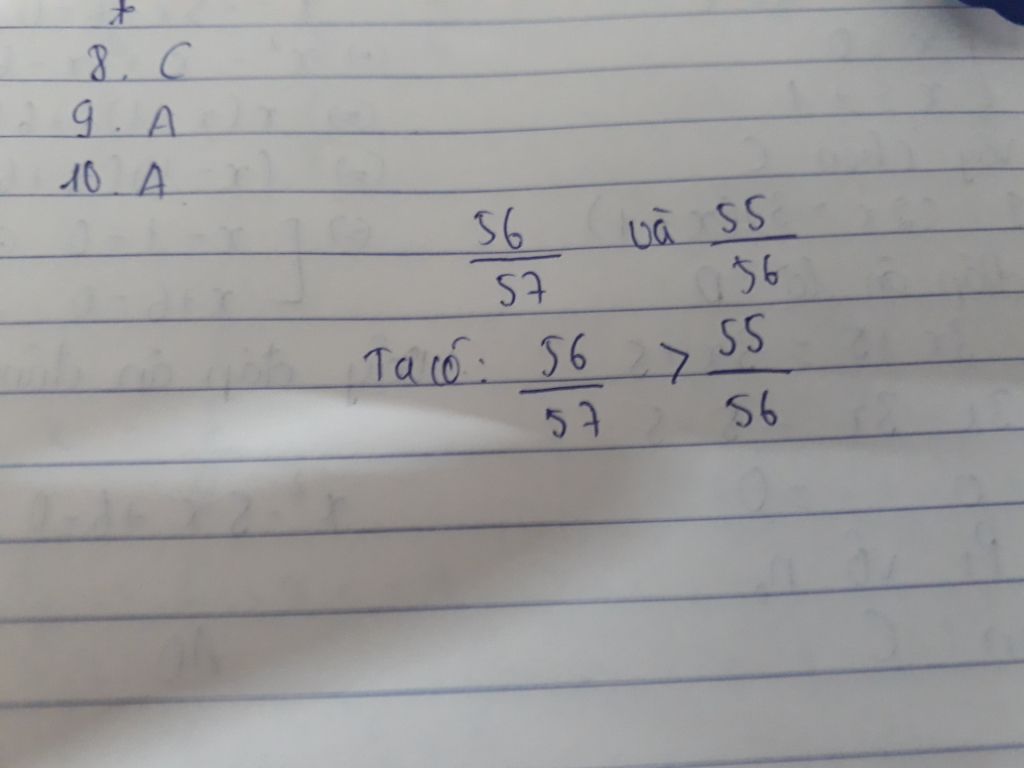 8. C
9. A
10. A
56/57 và 55/56
Ta có: 56/57 > 55/56